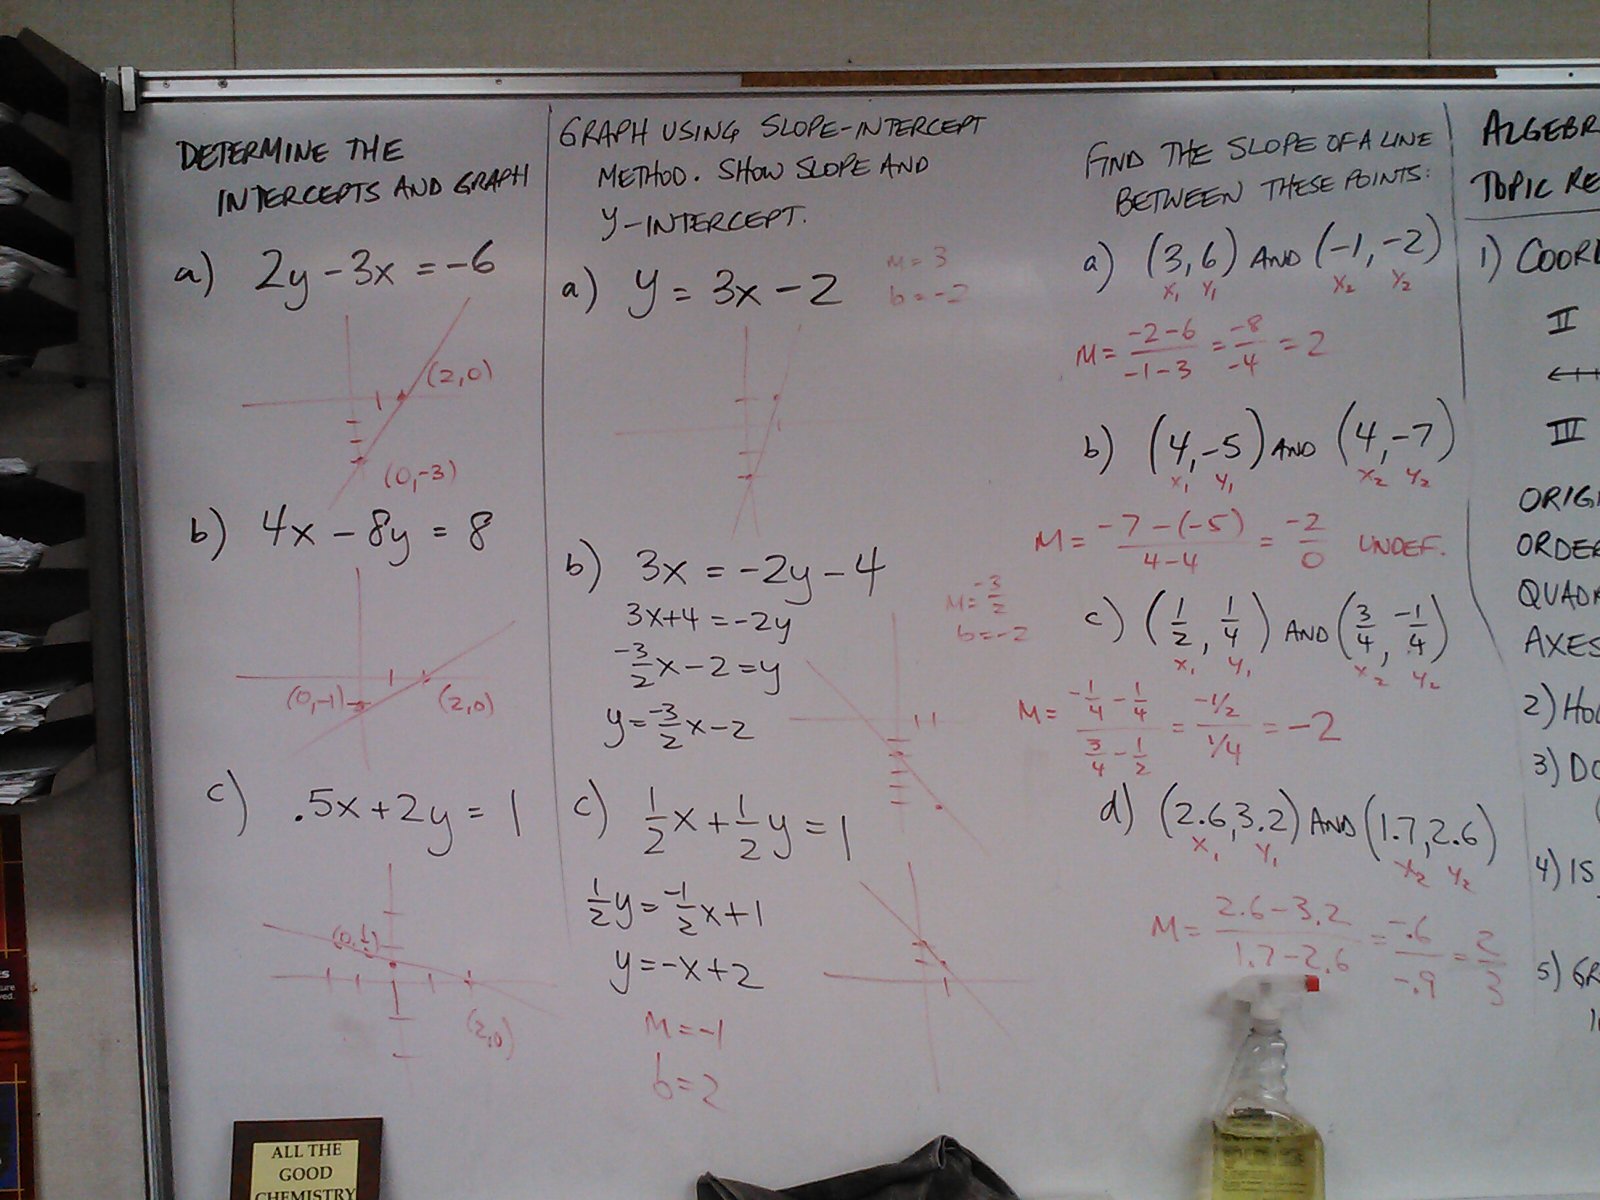 DETERMINE THE
INTERCEPTS AND GRAPH
a) 2y - 3x = -6
(2,0)
(0,-3)
b) 4x - 8y = 8
(0,-1)
(2,0)
c) .5x + 2y = 1
(0,½)
(2,0)
GRAPH USING SLOPE-INTERCEPT
METHOD. SHOW SLOPE AND
Y-INTERCEPT.
a) y = 3x - 2
M = 3
b = -2
b) 3x = -2y - 4
3x+4 = -2y
-3/2 x - 2 = y
y = -3/2 x - 2
M = -3/2
b = -2
c) 1/2 x + 1/2 y = 1
1/2 y = -1/2 x + 1
y = -x + 2
M = -1
b = 2
FIND THE SLOPE OF A LINE
BETWEEN THESE POINTS:
a) (3,6) AND (-1,-2)
x₁ y₁ x₂ y₂
M = -2-6/-1-3 = -8/-4 = 2
b) (4,-5) AND (4,-7)
x₁ y₁ x₂ y₂
M = -7-(-5)/4-4 = -2/0 UNDEF.
c) (1/2, 1/4) AND (3/4, -1/4)
x₁ y₁ x₂ y₂
M = -1/4 - 1/4 / 3/4 - 1/2 = -1/2 / 1/4 = -2
d) (2.6,3.2) AND (1.7,2.6)
x₁ y₁ x₂ y₂
M = 2.6-3.2/1.7-2.6 = -.6/-.9 = 2/3
ALGEBR
TOPIC RE
1) COOR
II
III
ORIG
ORDE
QUADR
AXES
2) HO
3) DO
4) IS
5) GR
ALL THE
GOOD
CHEMISTRY